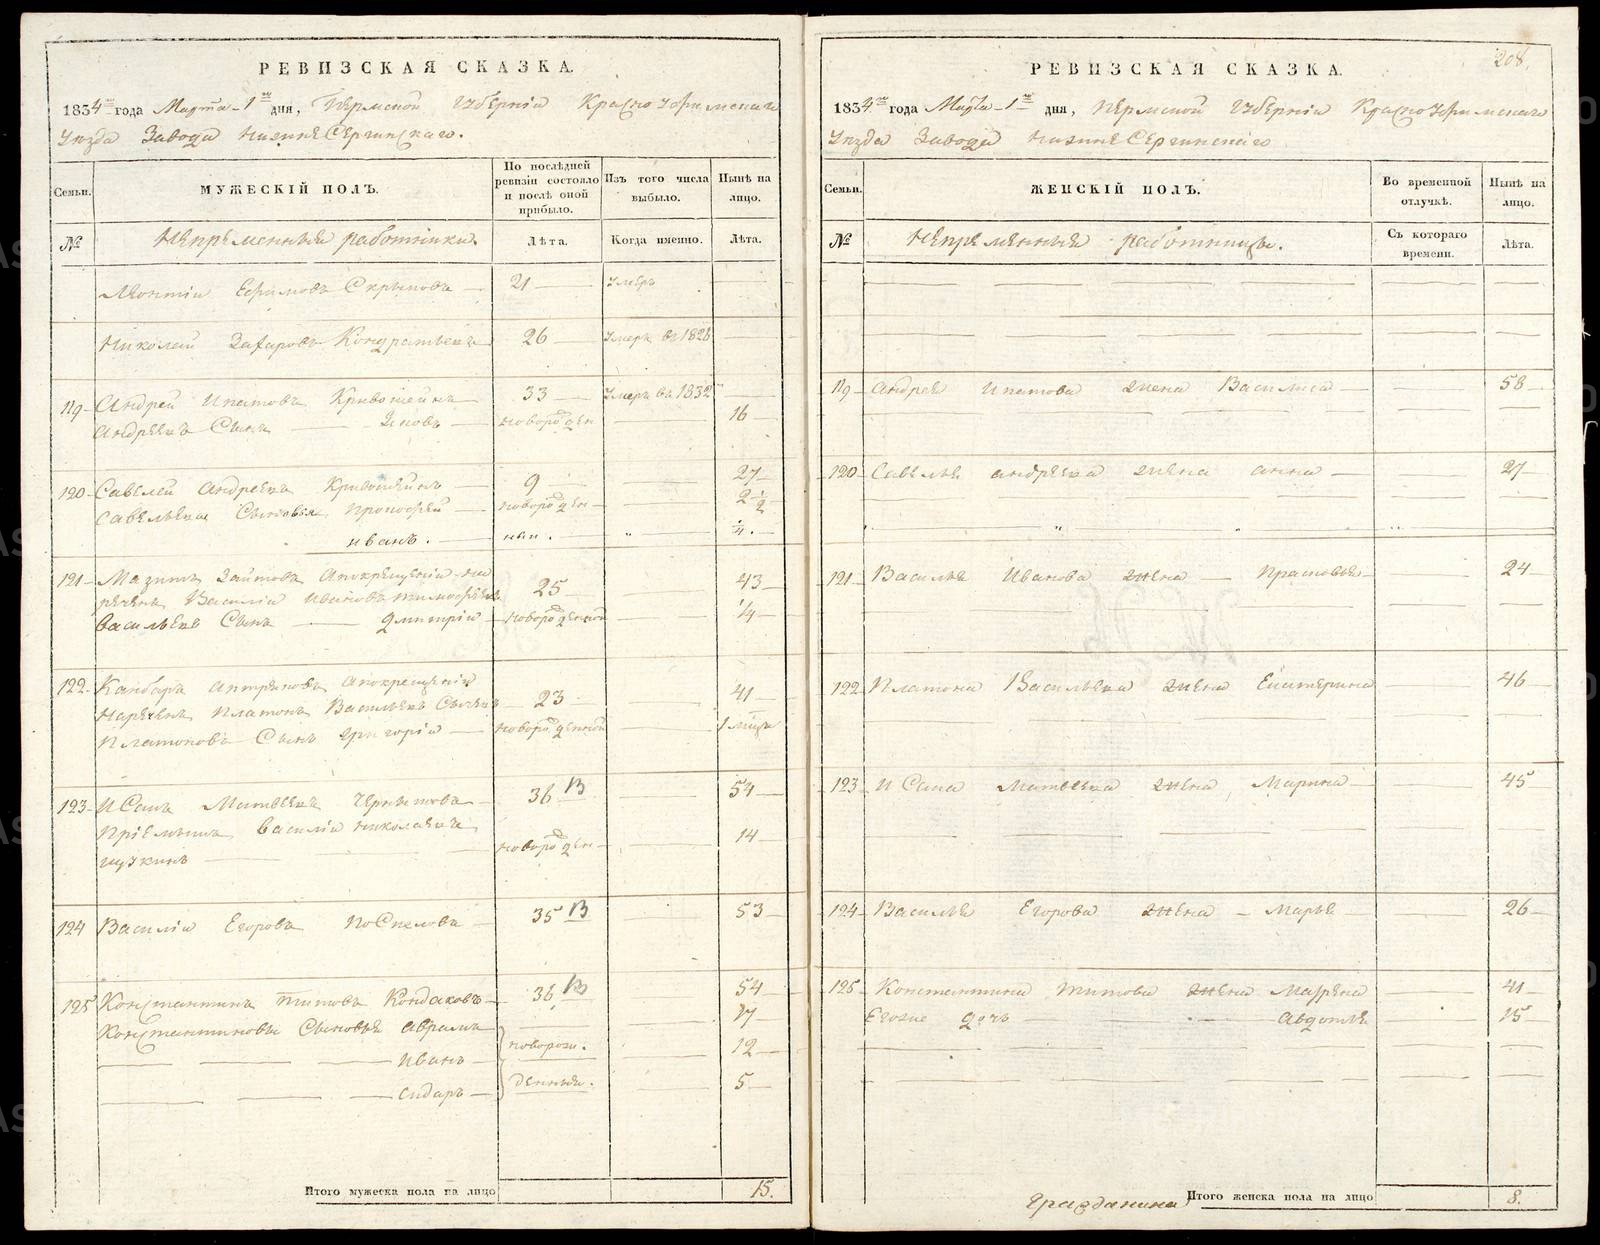 РЕВИЗСКАЯ СКАЗКА.
1834 года Марта 1 дня, Пермской Губернiи Красноуфимскаго
Уѣзда Завода Нижнесергинскаго.
Семьи. МУЖЕСКIЙ ПОЛЪ. По послѣдней ревизiи состояло и послѣ оной прибыло. Изъ того числа выбыло. Нынѣ на лицо.
№ Непременныя работники. Лѣта. Когда именно. Лѣта.
Леонтiи Ефимовъ 21 Умеръ
Николай Захаровъ Кондратьевъ 26 Умеръ въ 1828
119 Андрей Ипатовъ Кривошеинъ 33 Умеръ въ 1832
Андреевъ Сынъ Яковъ новорожден 16
120 Савелей Андреевъ Кривошеинъ 9 27
Савельевы Сыновья Прокофей новорожден 2 1/2
иванъ. ныи. " 1/4.
121 новокрещенiи на
реченъ Василiи Ивановъ Тимофеевъ 25 43
Васильевъ Сынъ Дмитрiи новорожденной 1/4
122
Нареченъ Платонъ Васильевъ 23 41
Платоновъ Сынъ Григорiи новорожденной 1 мѣсц
123 Исакъ Матвеевъ 36 В 54
Прiемышъ Василiи Николаевъ новорожден 14
124 Василiи Егоровъ Поспеловъ 35 В 53
125 Константинъ Титовъ Кондаковъ 36 В 54
Константиновы Сыновья Аврамъ 17
Иванъ новорож. 12
Сидаръ денныя. 5
Итого мужеска пола на лицо 15.
208.
РЕВИЗСКАЯ СКАЗКА.
1834 года Марта 1 дня, Пермской Губернiи Красноуфимскаго
Уѣзда Завода Нижнесергинскаго
Семьи. ЖЕНСКIЙ ПОЛЪ. Во временной отлучкѣ. Нынѣ на лицо.
№ Непременныя работницы. Съ котораго времени. Лѣта.
119 Андрея Ипатова жена Василиса 58
120 Савелья андреева жена анна 27
121 Василья Иванова жена Прасковья 24
122 Платона Васильева жена Екатерина 46
123 Исака Матвеева жена Марина 45
124 Василья Егорова жена Марья 26
125 Константина Титова жена Мавра 41
Егоже дочь Авдотья 15
Гражданина Итого женска пола на лицо 8.